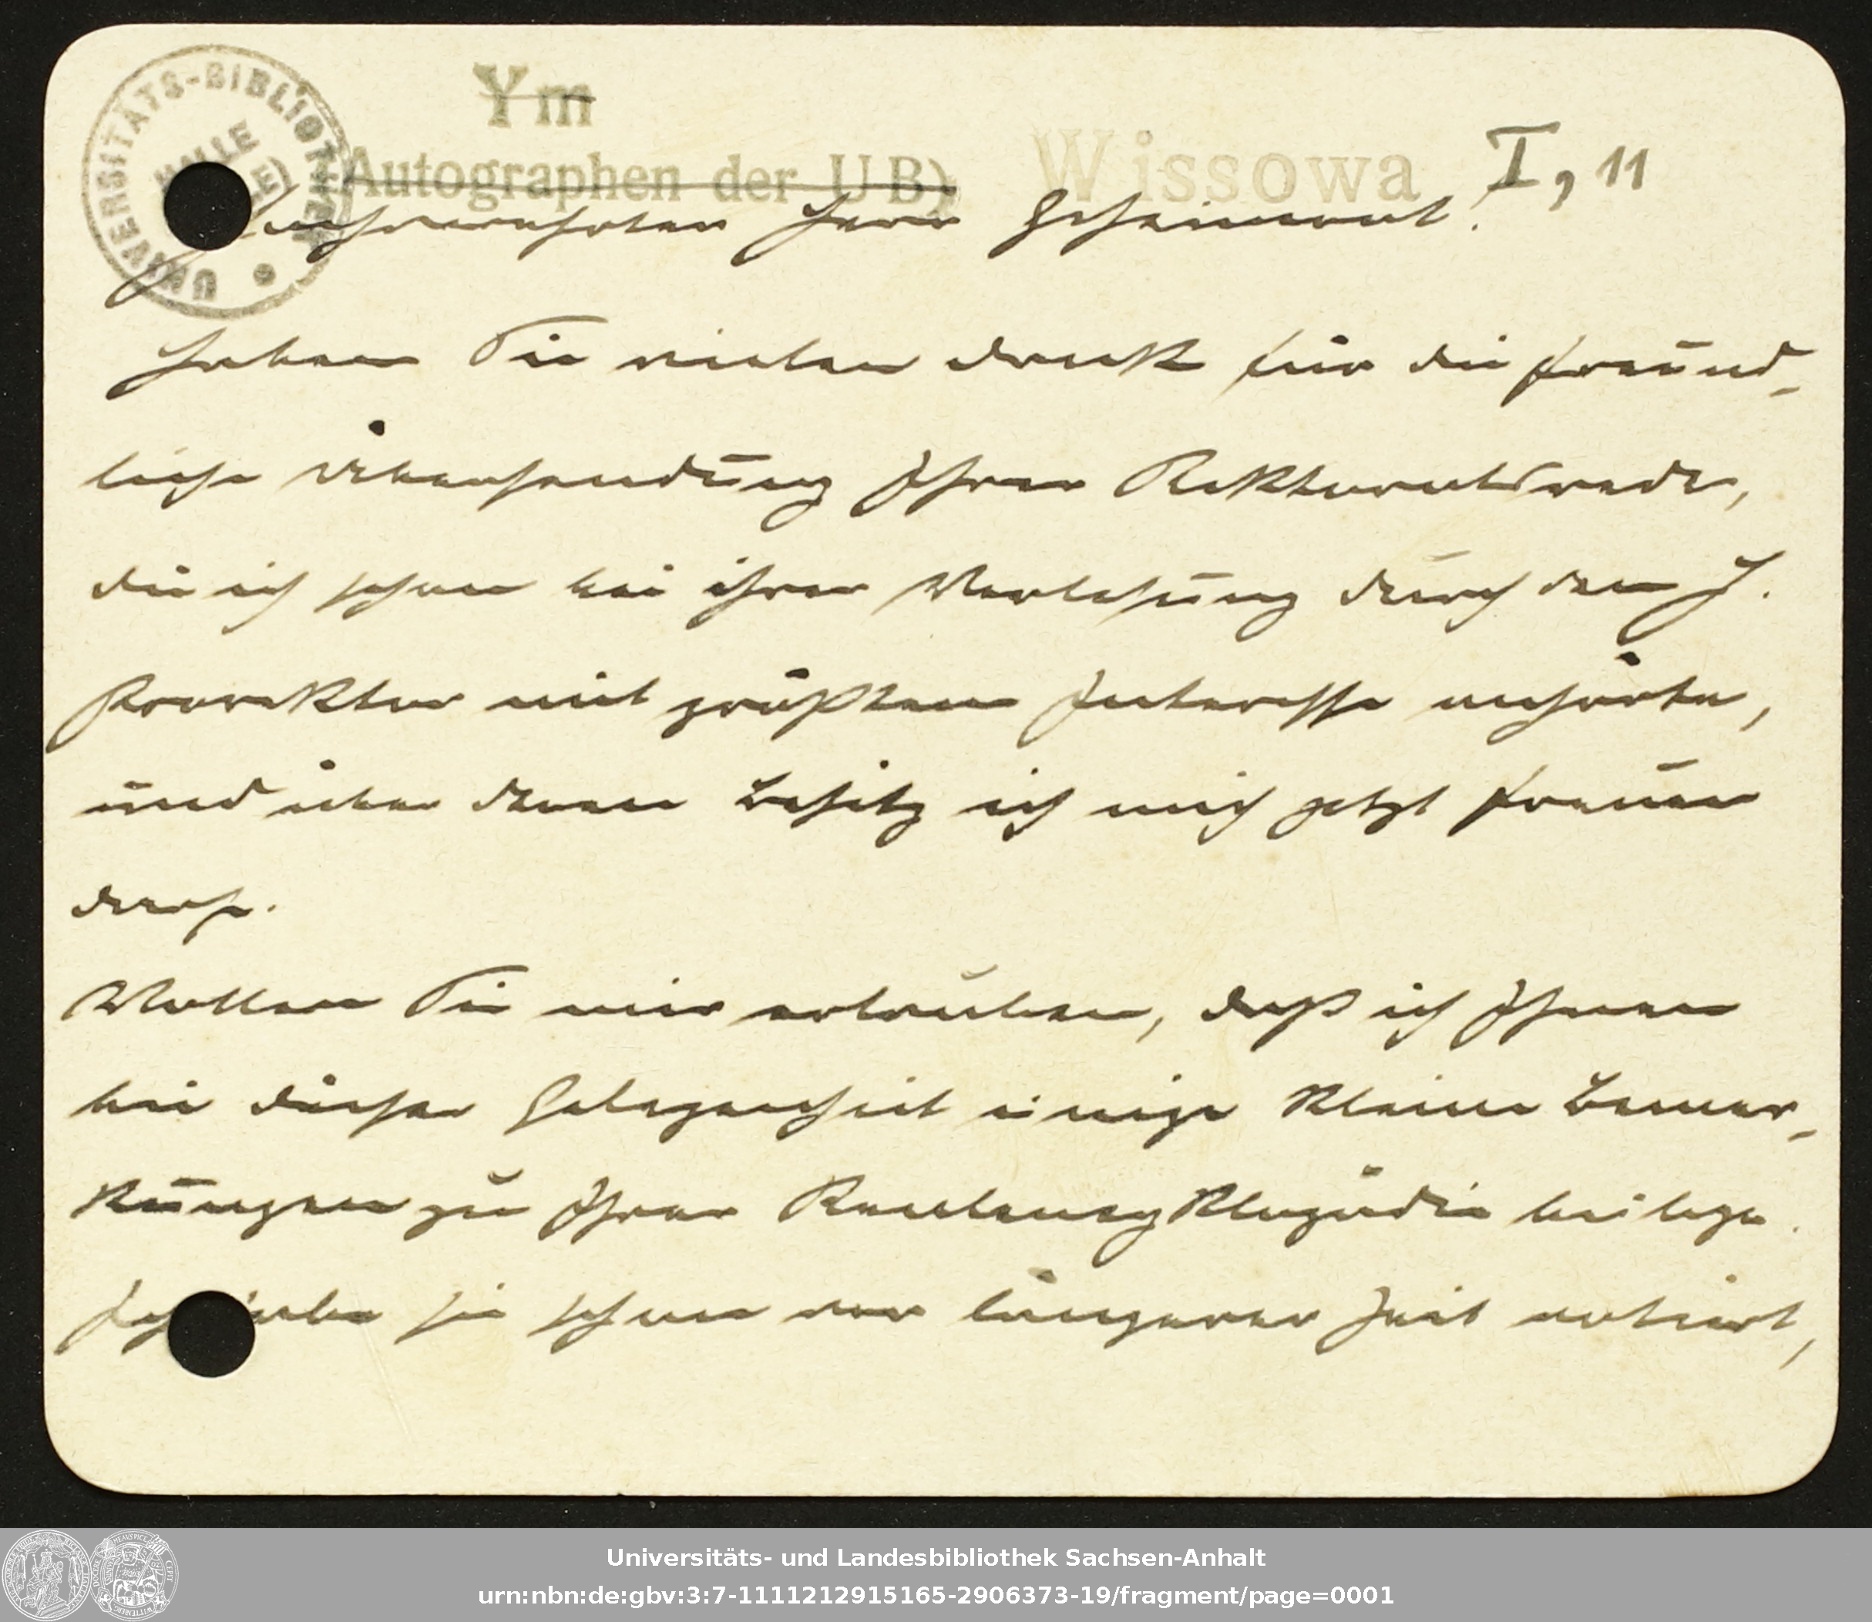 UNIVERSITÄTS-BIBLIOTHEK
HALLE
Ym
Autographen der UB)
Wissowa I, 11
Hochverehrter Herr Geheimrat!
Haben Sie vielen Dank für die freund-
liche Übersendung Ihrer Rektoratsrede,
die ich schon bei ihrer Verlesung durch den H.
Prorektor mit größtem Interesse anhörte,
und über deren Besitz ich mich jetzt freuen
darf.
Wollen Sie mir erlauben, daß ich Ihnen
bei dieser Gelegenheit einige kleine Bemer-
kungen zu Ihrer Realencyklopädie beilege.
Ich habe sie schon vor längerer Zeit notiert,
Universitäts- und Landesbibliothek Sachsen-Anhalt
urn:nbn:de:gbv:3:7-1111212915165-2906373-19/fragment/page=0001